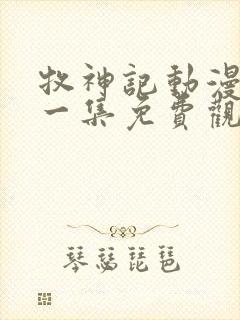 牧神記動漫
一集免費觀
琴瑟琵琶